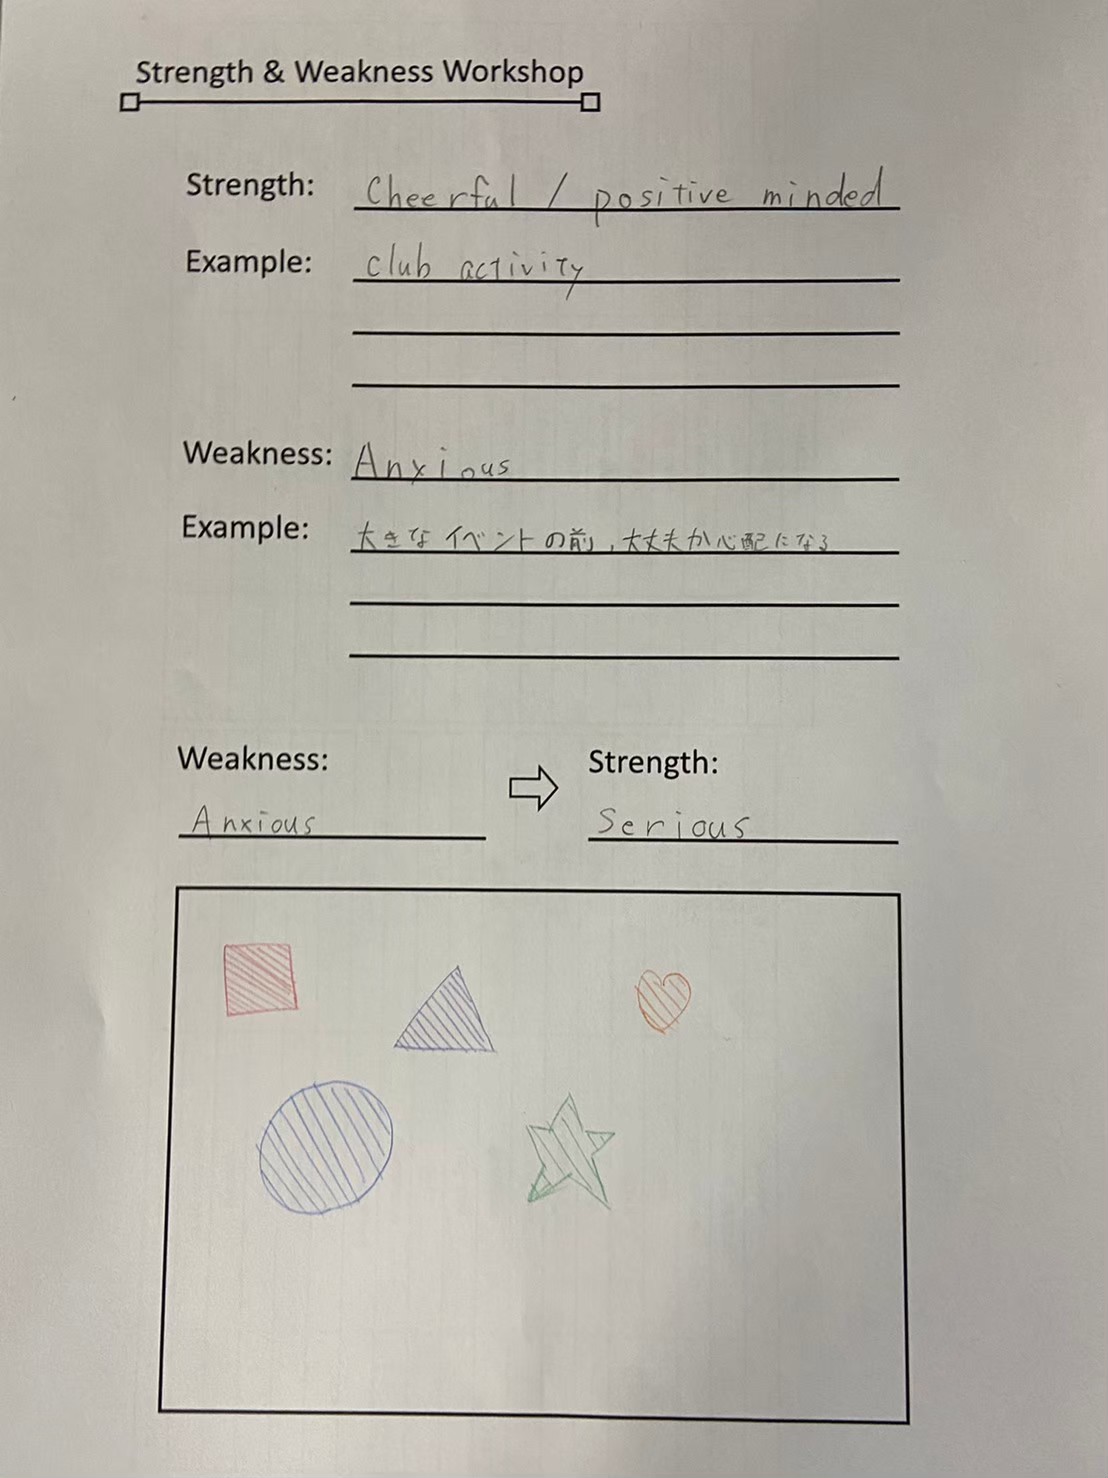 Strength & Weakness Workshop
Strength: Cheerful / positive minded
Example: club activity
Weakness: Anxious
Example: 大きなイベントの前,大丈夫か心配になる
Weakness:
Strength:
Anxious
Serious